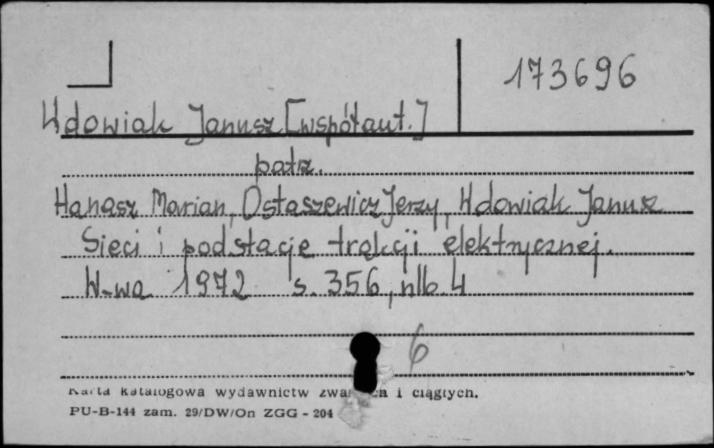 173696
Wdowiak Janusz [współaut.]
patrz.
Hanasz Marian, Ostaszewicz Jerzy, Wdowiak Janusz
Sieci i podstacje trakcji elektrycznej.
W-wa 1972 s. 356, nlb. 4
6
Karta katalogowa wydawnictw zwartych i ciągłych.
PU-B-144 zam. 29/DW/On ZGG - 204